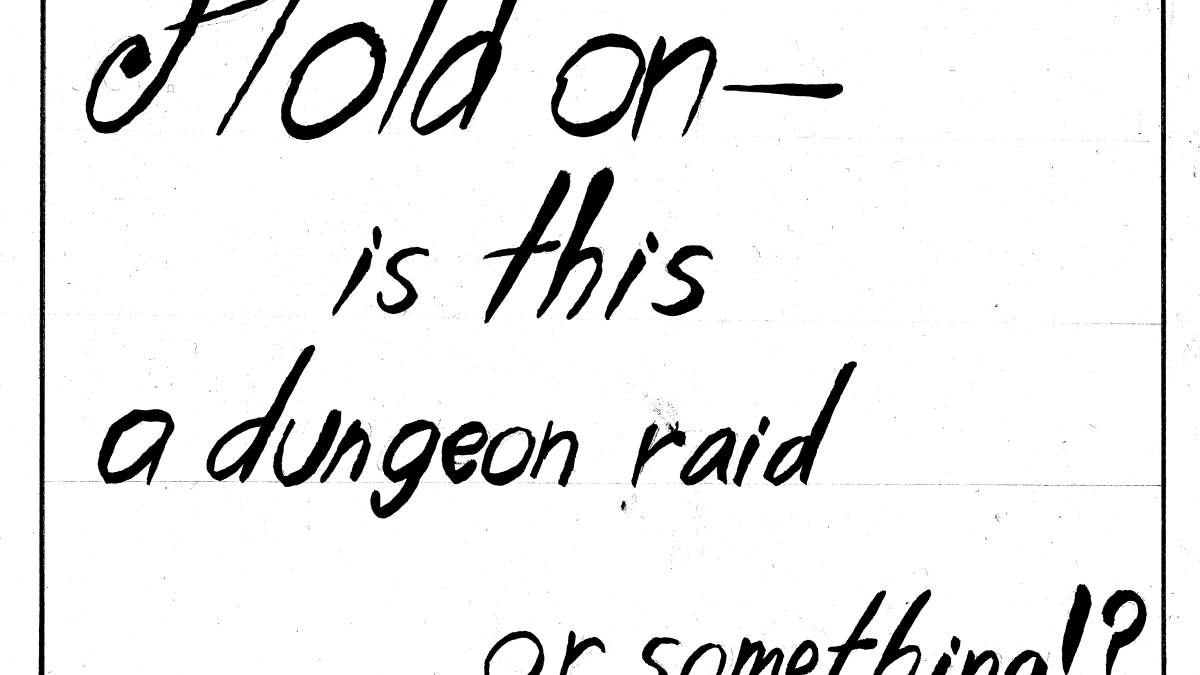 Hold on—
is this
a dungeon raid
or something!?